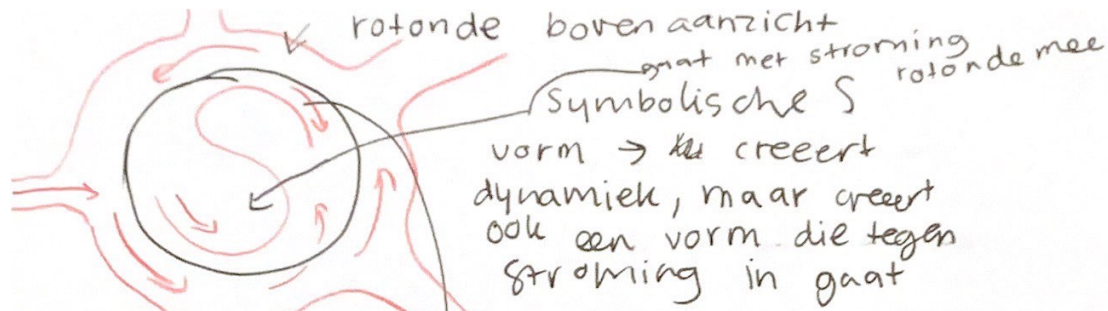 rotonde bovenaanzicht
gaat met stroming
rotonde mee
Symbolische S
vorm → creeert
dynamiek, maar creeert
ook een vorm die tegen
stroming in gaat